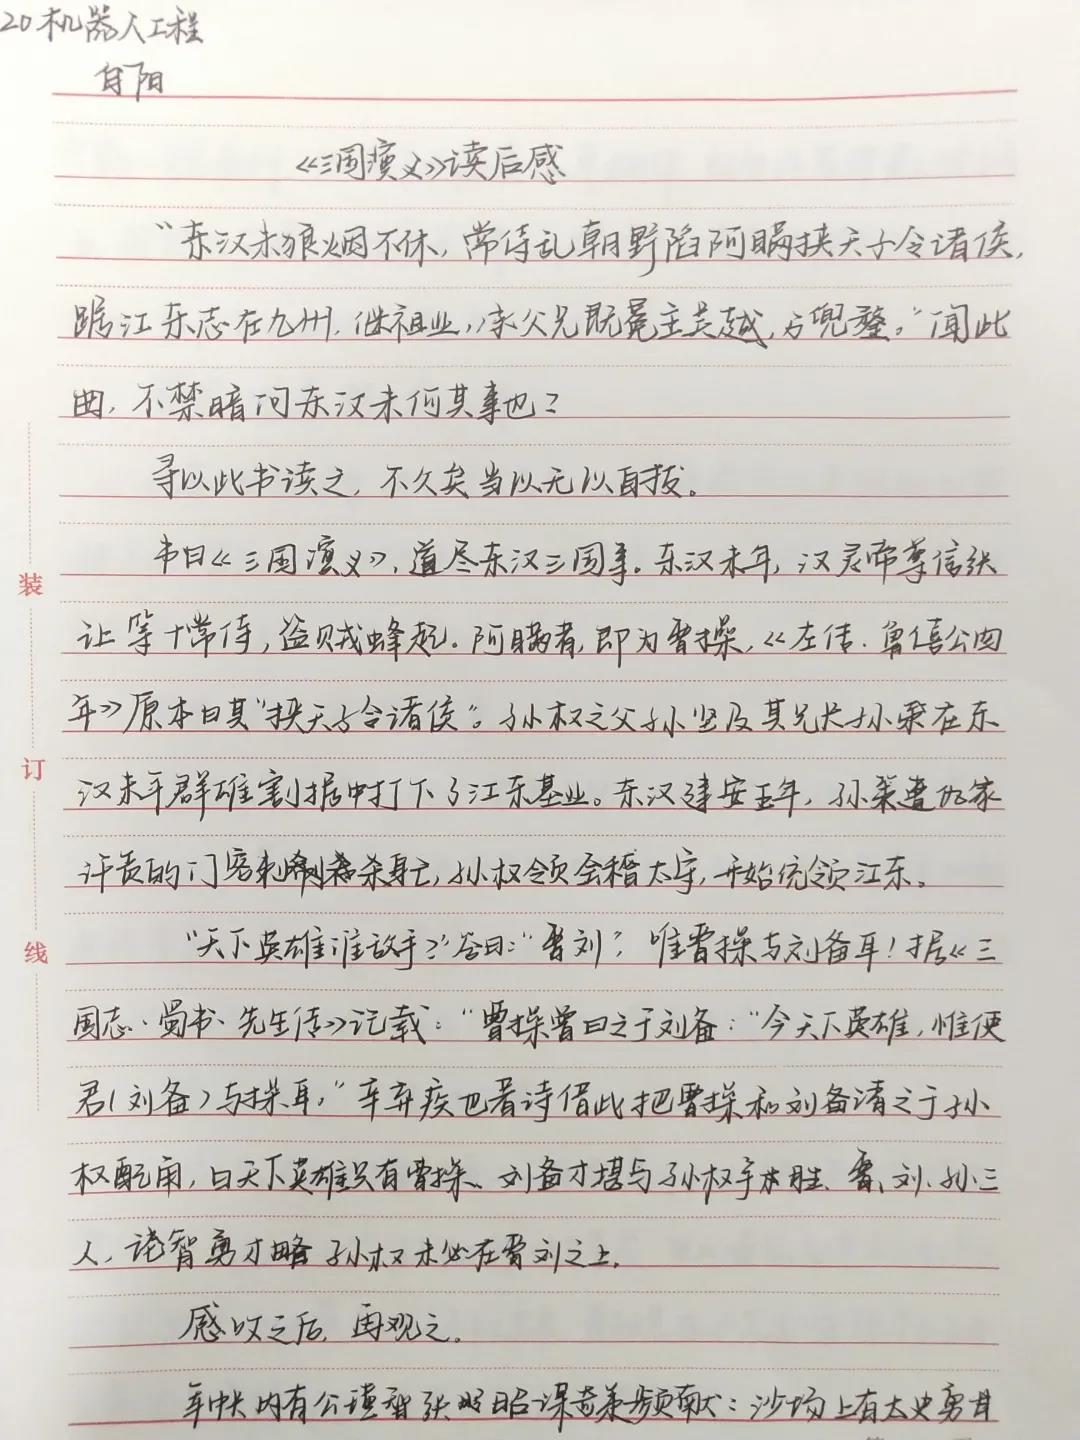 20机器人工程
自阳
《三国演义》读后感
“东汉末狼烟不休，常侍乱朝野陷阿瞒挟天子令诸侯，
踞江东志在九州，继祖业，承父兄既冕主吴越，方兜鍪。”闻此
曲，不禁暗问东汉末何其事也？
寻以此书读之，不久矣当以无以自拔。
书曰《三国演义》，道尽东汉三国事。东汉末年，汉灵帝尊信张
让等十常侍，盗贼蜂起。阿瞒者，即为曹操，《左传·鲁僖公四
年》原本曰其“挟天子令诸侯”。孙权之父孙坚及其兄长孙策在东
汉末年群雄割据中打下了江东基业。东汉建安五年，孙策遭仇家
许贡的门客刺杀身亡，孙权领会稽太守，开始统领江东。
“天下英雄谁敌手？”答曰：“曹刘”，唯曹操与刘备耳！据《三
国志·蜀书·先生传》记载：“曹操曾曰之于刘备：“今天下英雄，惟使
君（刘备）与操耳，”辛弃疾也着诗借此把曹操和刘备请之于孙
权配角，曰天下英雄只有曹操、刘备才堪与孙权争胜、曹、刘、孙三
人，论智勇才略孙权未必在曹刘之上。
感叹之后，再观之。
年中内有公瑾智张昭谋奇策频献：沙场上有太史勇甘
装
订
线